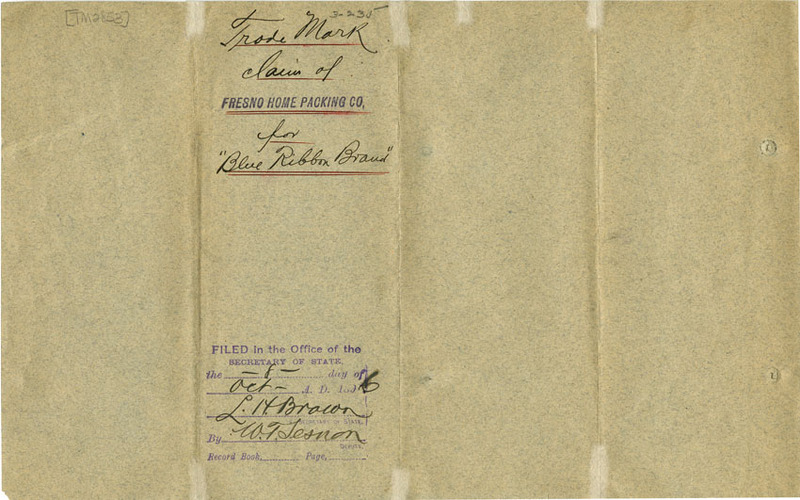 [TM2853]
3-235
Trade Mark
claim of
FRESNO HOME PACKING CO,
for
"Blue Ribbon Brand"
FILED in the Office of the
SECRETARY OF STATE,
the - 8 - day of
Oct - A. D. 1896
L. H Brown
SECRETARY OF STATE.
By W. T. Sesnon
DEPUTY.
Record Book, Page,